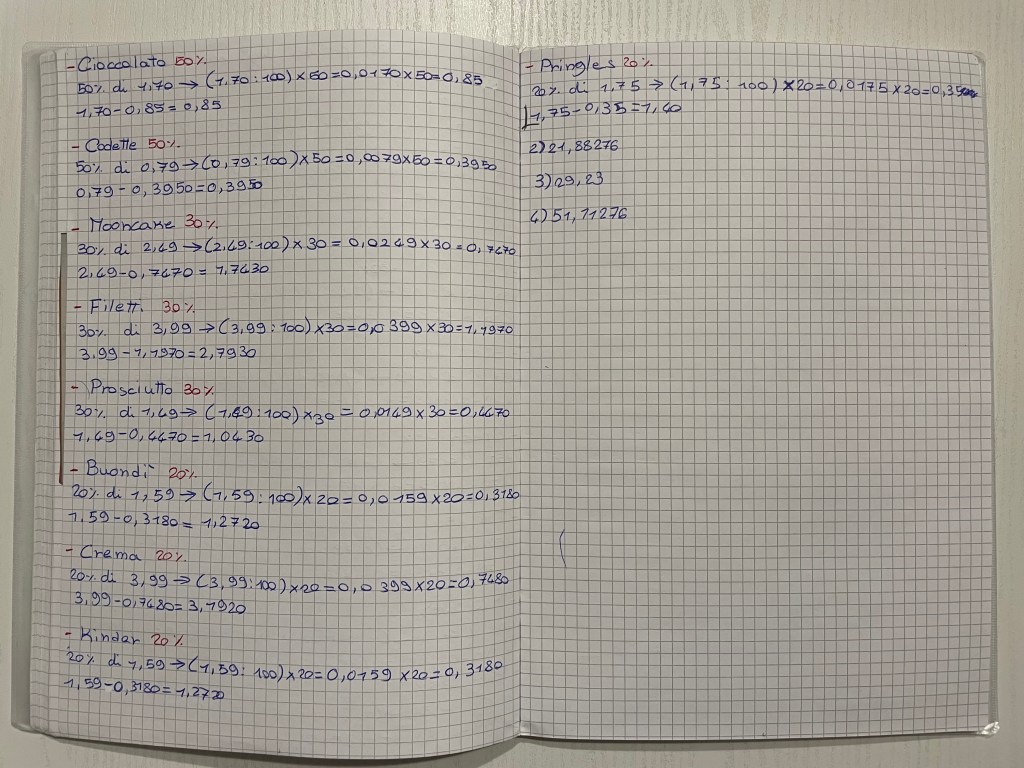 - Cioccolato 50%
50% di 1,70 → (1,70:100)×50=0,0170×50=0,85
1,70-0,85=0,85
- Codette 50%
50% di 0,79 → (0,79:100)×50=0,0079×50=0,3950
0,79-0,3950=0,3950
- Mooncake 30%
30% di 2,49 → (2,49:100)×30=0,0249×30=0,7470
2,49-0,7470=1,7430
- Filetti 30%
30% di 3,99 → (3,99:100)×30=0,0399×30=1,1970
3,99-1,1970=2,7930
- Prosciutto 30%
30% di 1,49 → (1,49:100)×30=0,0149×30=0,4470
1,49-0,4470=1,0430
- Buondì 20%
20% di 1,59 → (1,59:100)×20=0,0159×20=0,3180
1,59-0,3180=1,2720
- Crema 20%
20% di 3,99 → (3,99:100)×20=0,0399×20=0,7480
3,99-0,7480=3,1920
- Kinder 20%
20% di 1,59 → (1,59:100)×20=0,0159×20=0,3180
1,59-0,3180=1,2720
- Pringles 20%
20% di 1,75 → (1,75:100)×20=0,0175×20=0,35
1,75-0,35=1,40
2) 21,88276
3) 29,23
4) 51,11276